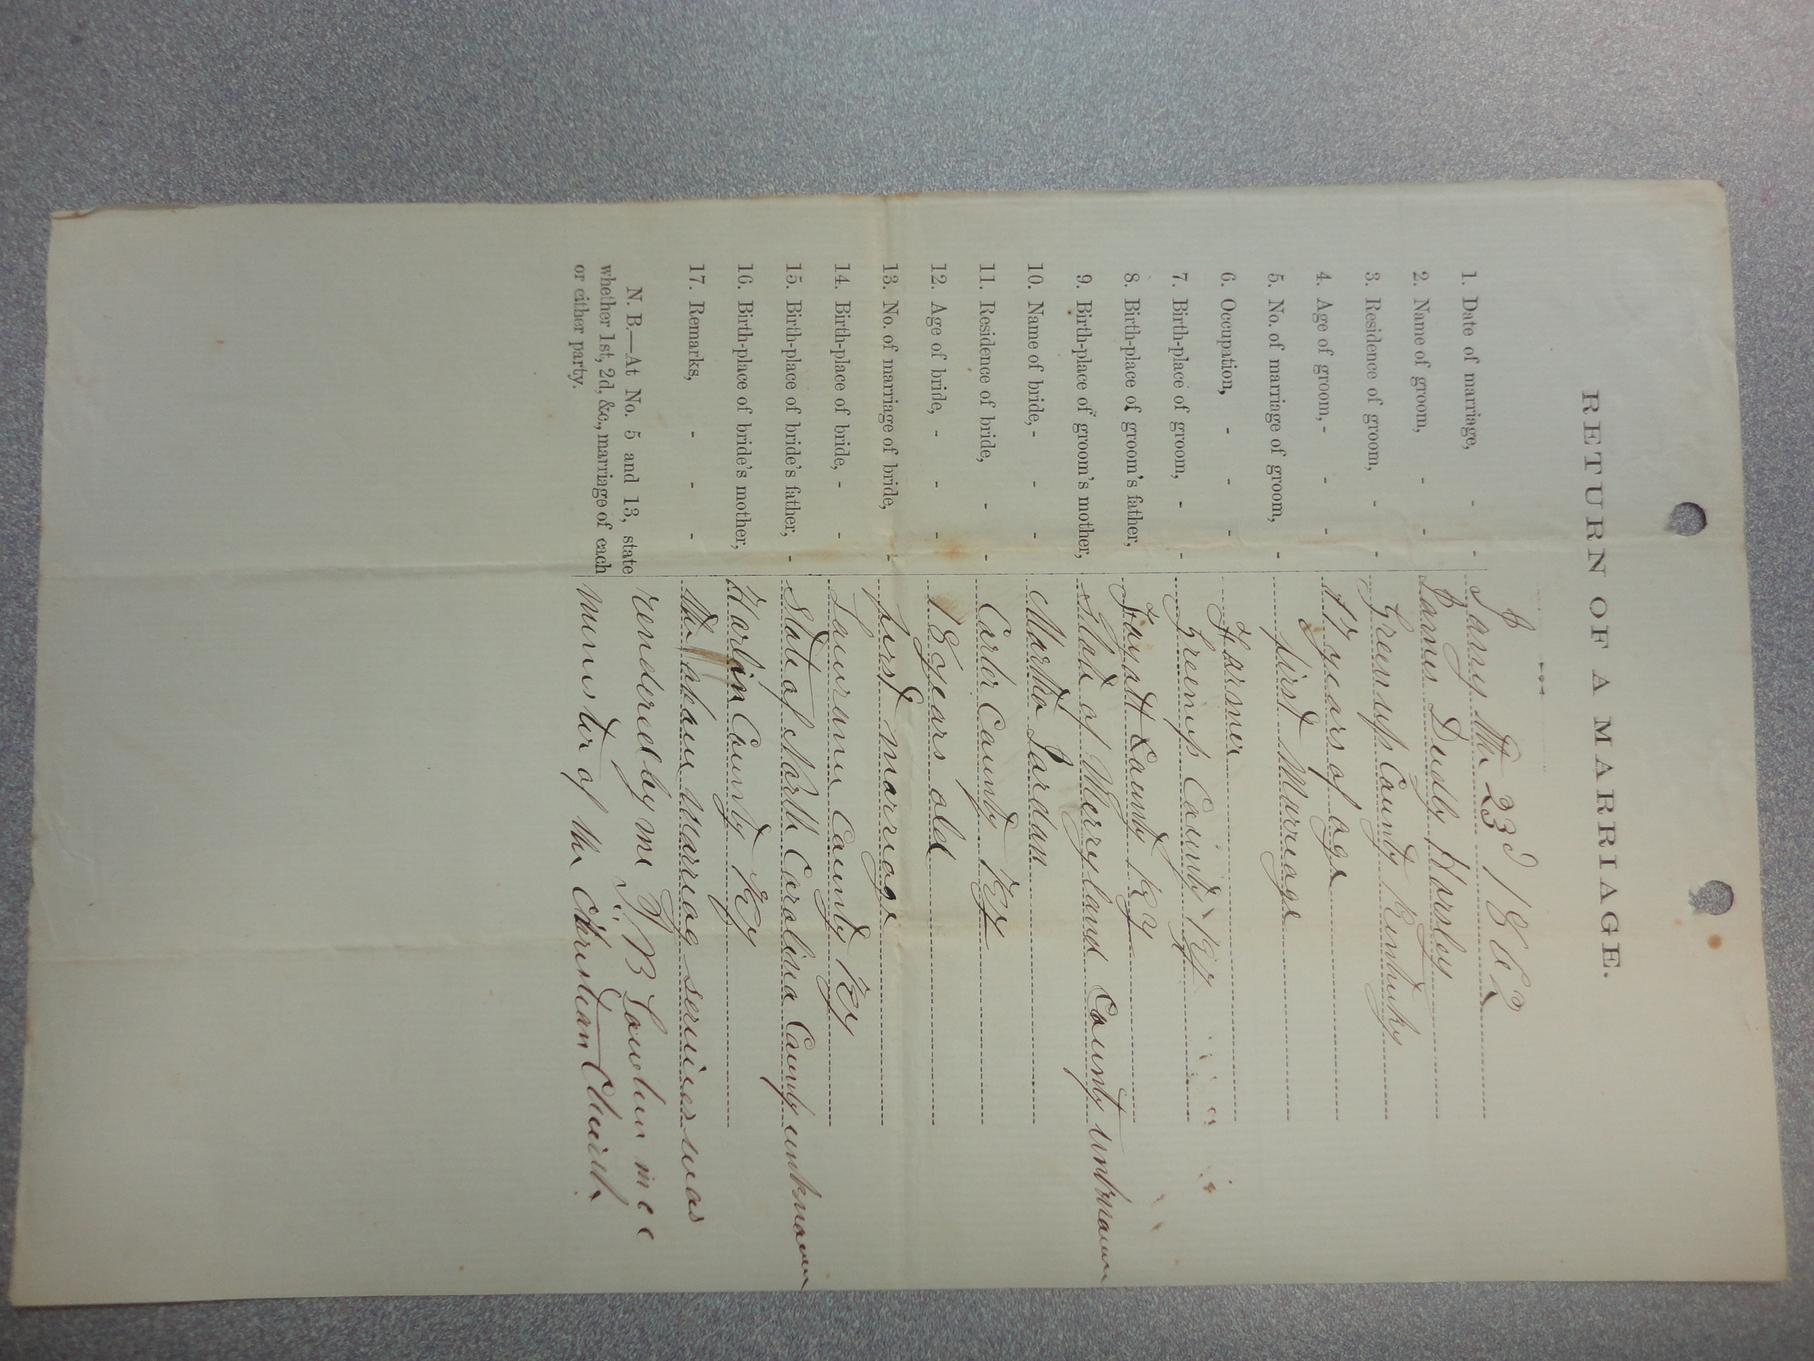 RETURN OF A MARRIAGE.
1. Date of marriage, - - Jany the 23d 1862
2. Name of groom, - - James Dudly Horsley
3. Residence of groom, - - Greenup County Kentucky
4. Age of groom, - - - years of age
5. No. of marriage of groom, - first Murriage
6. Occupation, - - - Farmer
7. Birth-place of groom, - - Greenup County Ky
8. Birth-place of groom's father, Fayatt County Ky
9. Birth-place of groom's mother, State of Merryland County unknown
10. Name of bride, - - - Martha Jordan
11. Residence of bride, - - Carter County Ky
12. Age of bride, - - - 18 years old
13. No. of marriage of bride, - first marriage
14. Birth-place of bride, - - County Ky
15. Birth-place of bride's father, - State of North Carolina County unknown
16. Birth-place of bride's mother, Harlin County Ky
17. Remarks, - - - the above marriag services was
N. B.—At No. 5 and 13, state rendered by me B
whether 1st, 2d, &c., marriage of each minister of the Christian Church
or either party.